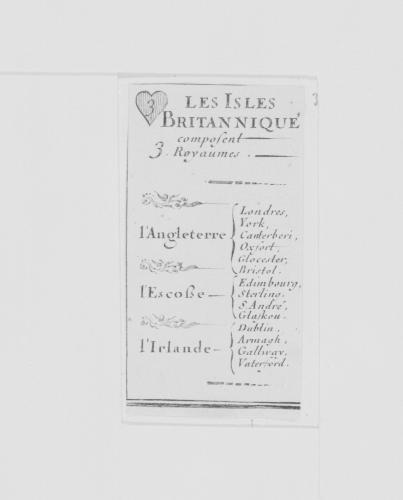 3
3 LES ISLES
BRITANNIQUE
composent
3. Royaumes.
l'Angleterre
Londres,
York,
Canterberi,
Oxfort,
Glocester,
Bristol.
l'Escoße
Edimbourg,
Sterling.
S. André,
Glaskou.
l'Irlande
Dublin,
Armagh,
Gallway,
Vaterford.